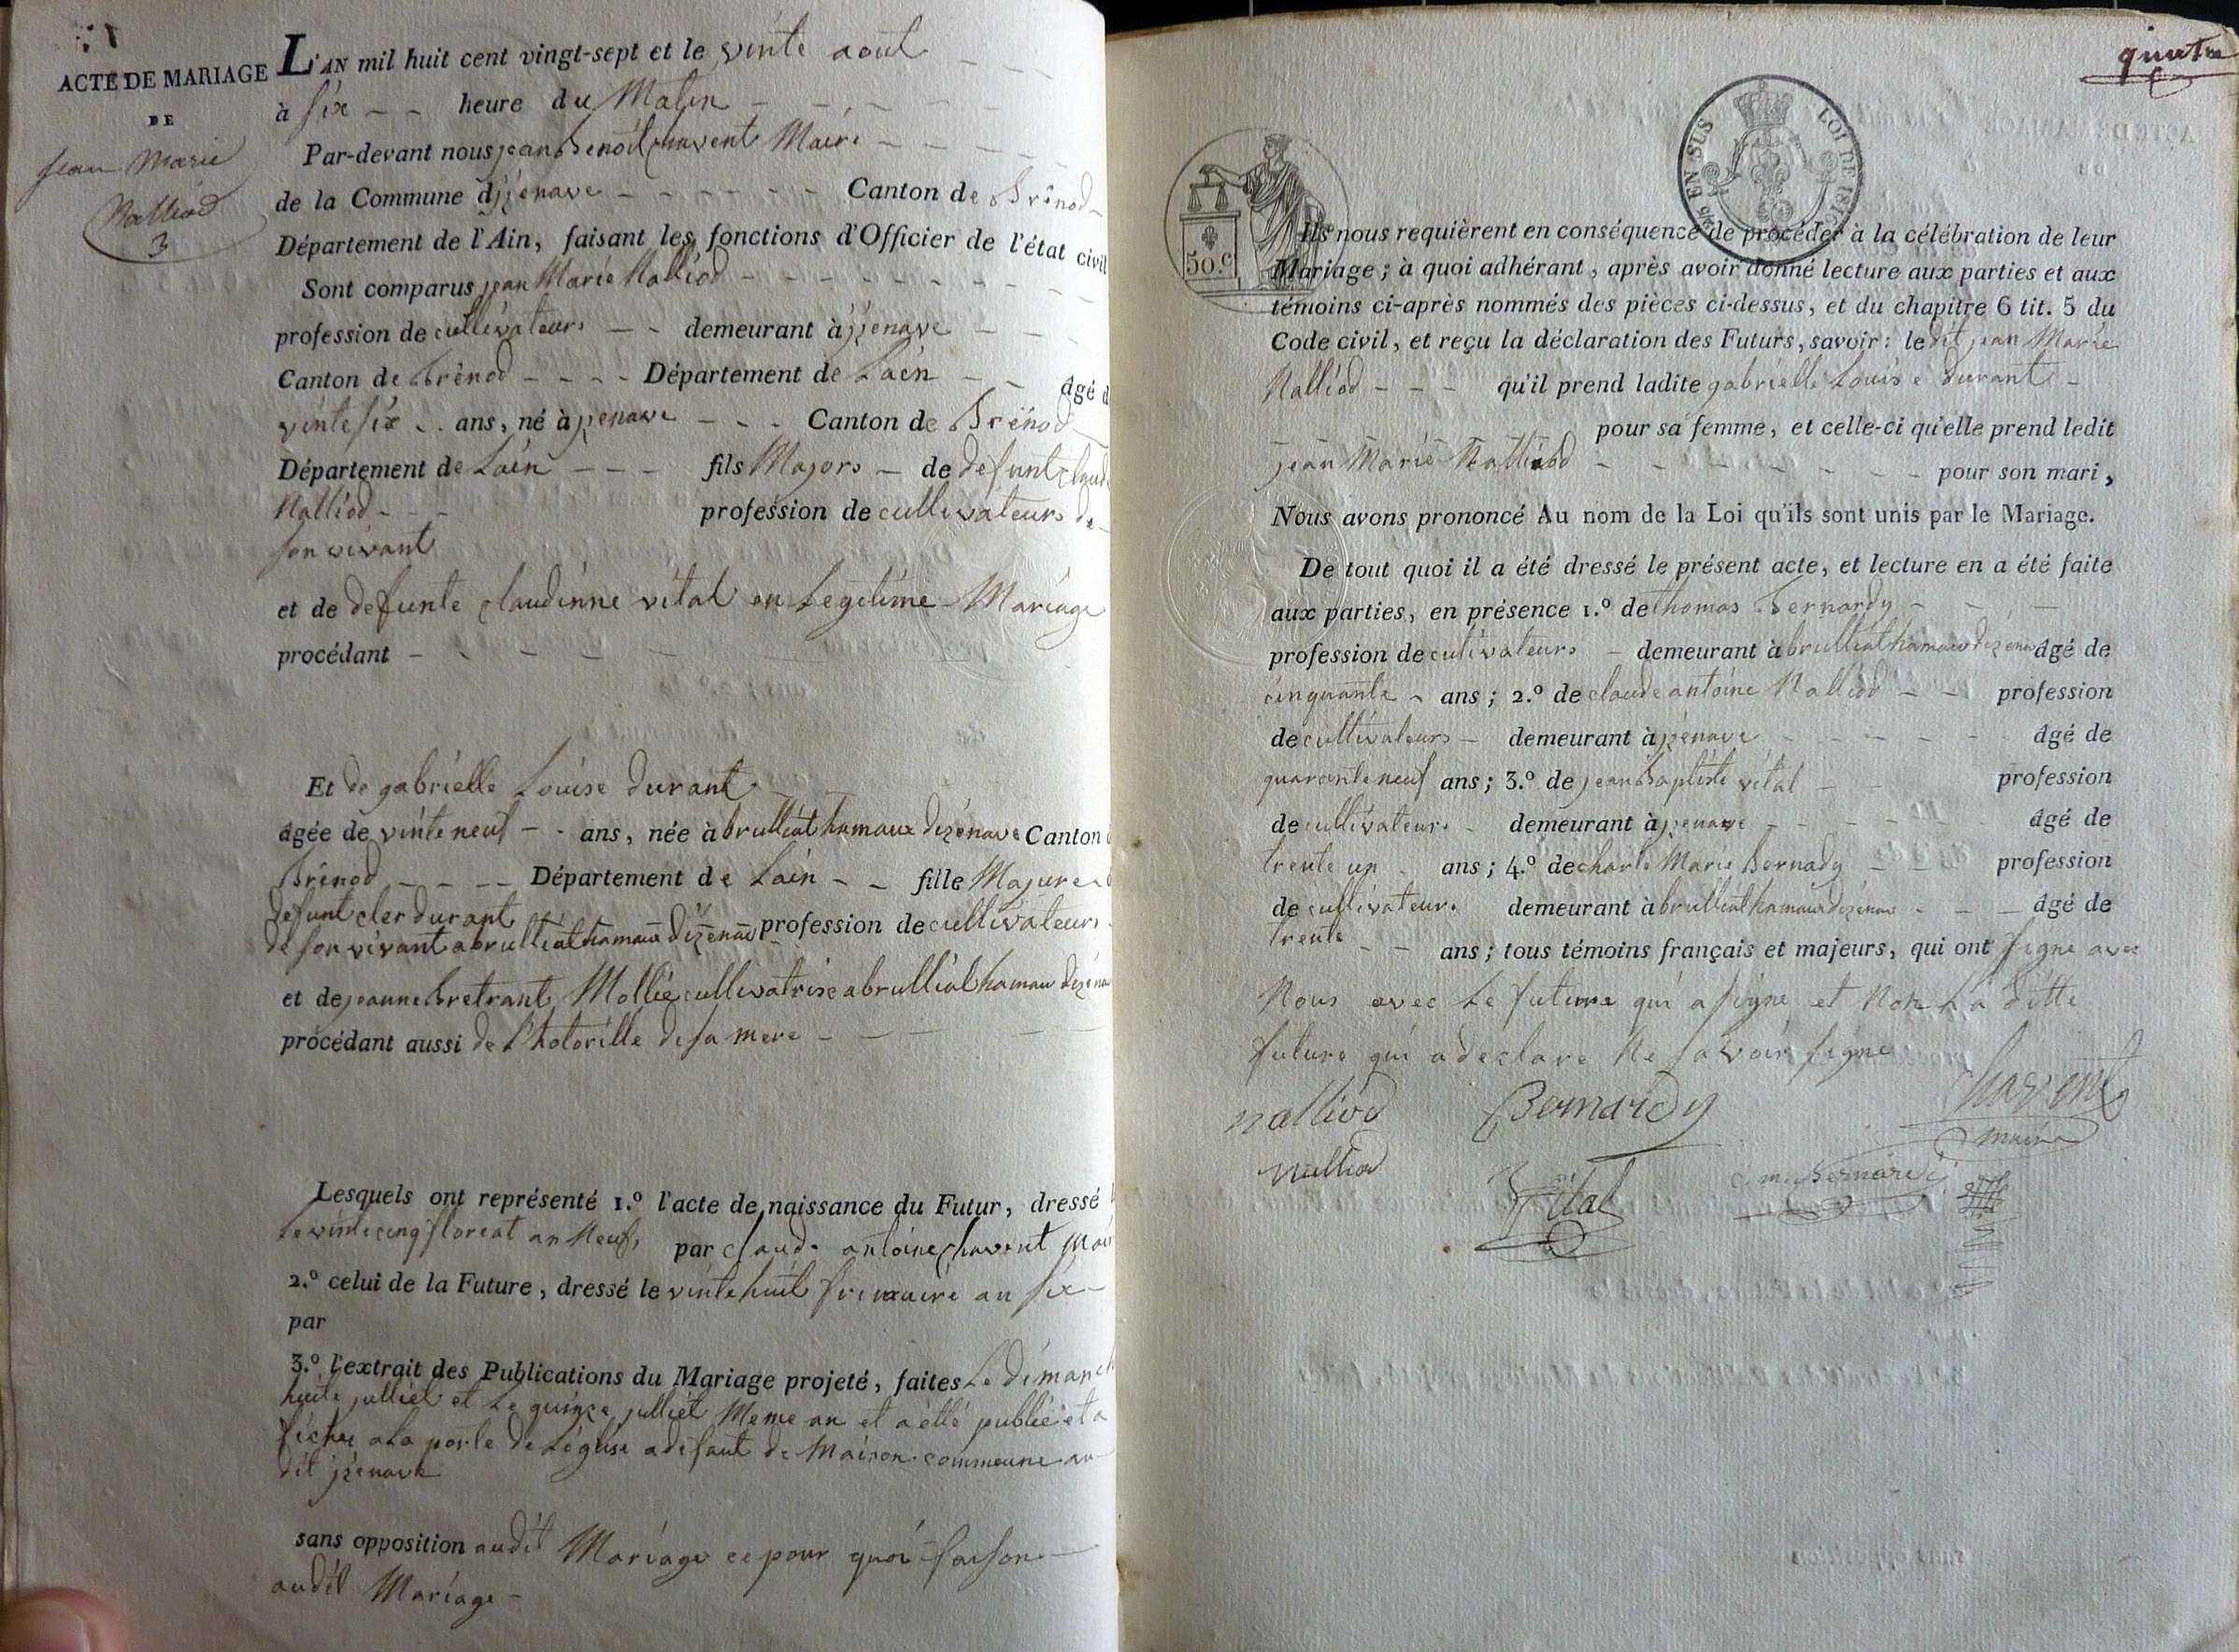 ACTE DE MARIAGE
DE
jean Marie
Nalliod
3
L'AN mil huit cent vingt-sept et le vinte aout
à six heure du Matin
Par-devant nous jean Benoit Chavent Maire
de la Commune djzenave Canton de Brénod
Département de l'Ain, faisant les fonctions d'Officier de l'état civil
Sont comparus jean Marie Nalliod
profession de cultivateurs demeurant à jzenave
Canton de Brénod Département de Lain âgé d
vinte six ans, né à jzenave Canton de Brénod
Département de Lain fils Majors de defunt Claude
Nalliod profession de cultivateurs de
son vivant
et de defunte claudinne vital en Legitime Mariage
procédant
Et de gabrielle Louise durant
âgée de vinte neuf ans, née à brulliat hamaux dizenave Canton
Brénod Département de Lain fille Majure
defunt cler durant
de son vivant a brulliat hamaux dizenave profession de cultivateurs
et de jeanne Bretrant Mollie cultivatrise a brulliat hamau dizenave
procédant aussi de L'hotorille de sa mere
Lesquels ont représenté 1.º l'acte de naissance du Futur, dressé
le vinte cinq floreat an Neuf, par claude antoine Chavent Mai
2.º celui de la Future, dressé le vinte huit frimaire an six
par
3.º l'extrait des Publications du Mariage projeté, faites Le dimanch
huite julliet et Le quinze julliet Meme an et a été publié et a
fiche a La porte de Léglise a defaut de Maison commeune au
dit jzenave
sans opposition audit Mariage ce pour quoi faison
audit Mariage
50.C
EN SUS
LOI DE 1816
Ils nous requièrent en conséquence de procéder à la célébration de leur
Mariage; à quoi adhérant, après avoir donné lecture aux parties et aux
témoins ci-après nommés des pièces ci-dessus, et du chapitre 6 tit. 5 du
Code civil, et reçu la déclaration des Futurs, savoir: le dit jean Marie
Nalliod qu'il prend ladite gabrielle Louise durant
pour sa femme, et celle-ci qu'elle prend ledit
jean Marie Nalliod pour son mari,
Nous avons prononcé Au nom de la Loi qu'ils sont unis par le Mariage.
De tout quoi il a été dressé le présent acte, et lecture en a été faite
aux parties, en présence 1.º de thomas Bernardy
profession de cultivateurs demeurant à brulliat hamau dizenav âgé de
cinquante ans; 2.º de claude antoine Nalliod profession
de cultivateurs demeurant à jzenave âgé de
quarante neuf ans; 3.º de jean Baptiste vital profession
de cultivateurs demeurant à jzenave âgé de
trente un ans; 4.º de charle Marie Bernady profession
de cultivateurs demeurant à brulliat hamaux dizenav âgé de
trente ans; tous témoins français et majeurs, qui ont signe avec
Nous avec Le future qui a signe et Non La ditte
future qui a declare Ne savoir signe
nalliod Bernardy Chavent
maire
nalliod Vital c. m. Bernardi